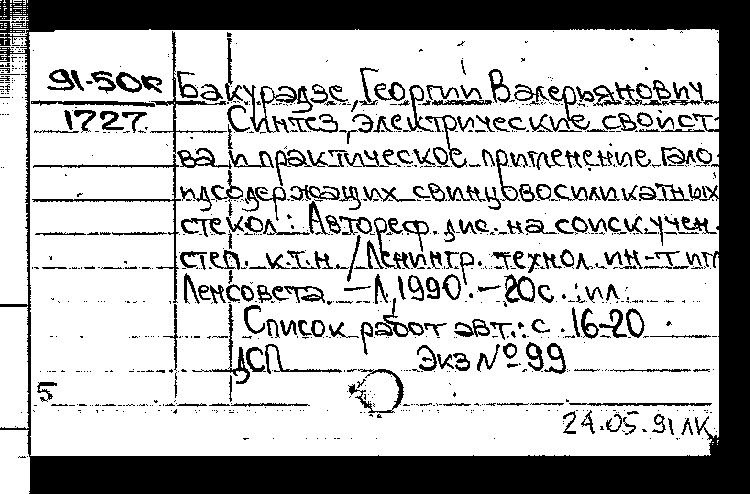 91-50к Бакурадзе, Георгий Валерьянович
1727 Синтез, электрические свойст-
ва и практическое применение гало-
идсодержащих свинцовосиликатных
стекол: Автореф. дис. на соиск. учен.
степ. к.т.н. / Ленингр. технол. ин-т им
Ленсовета. — Л, 1990. — 20 с. : ил.
Список работ авт.: с. 16-20
ДСП Экз № 99
5
24.05.91 ЛК